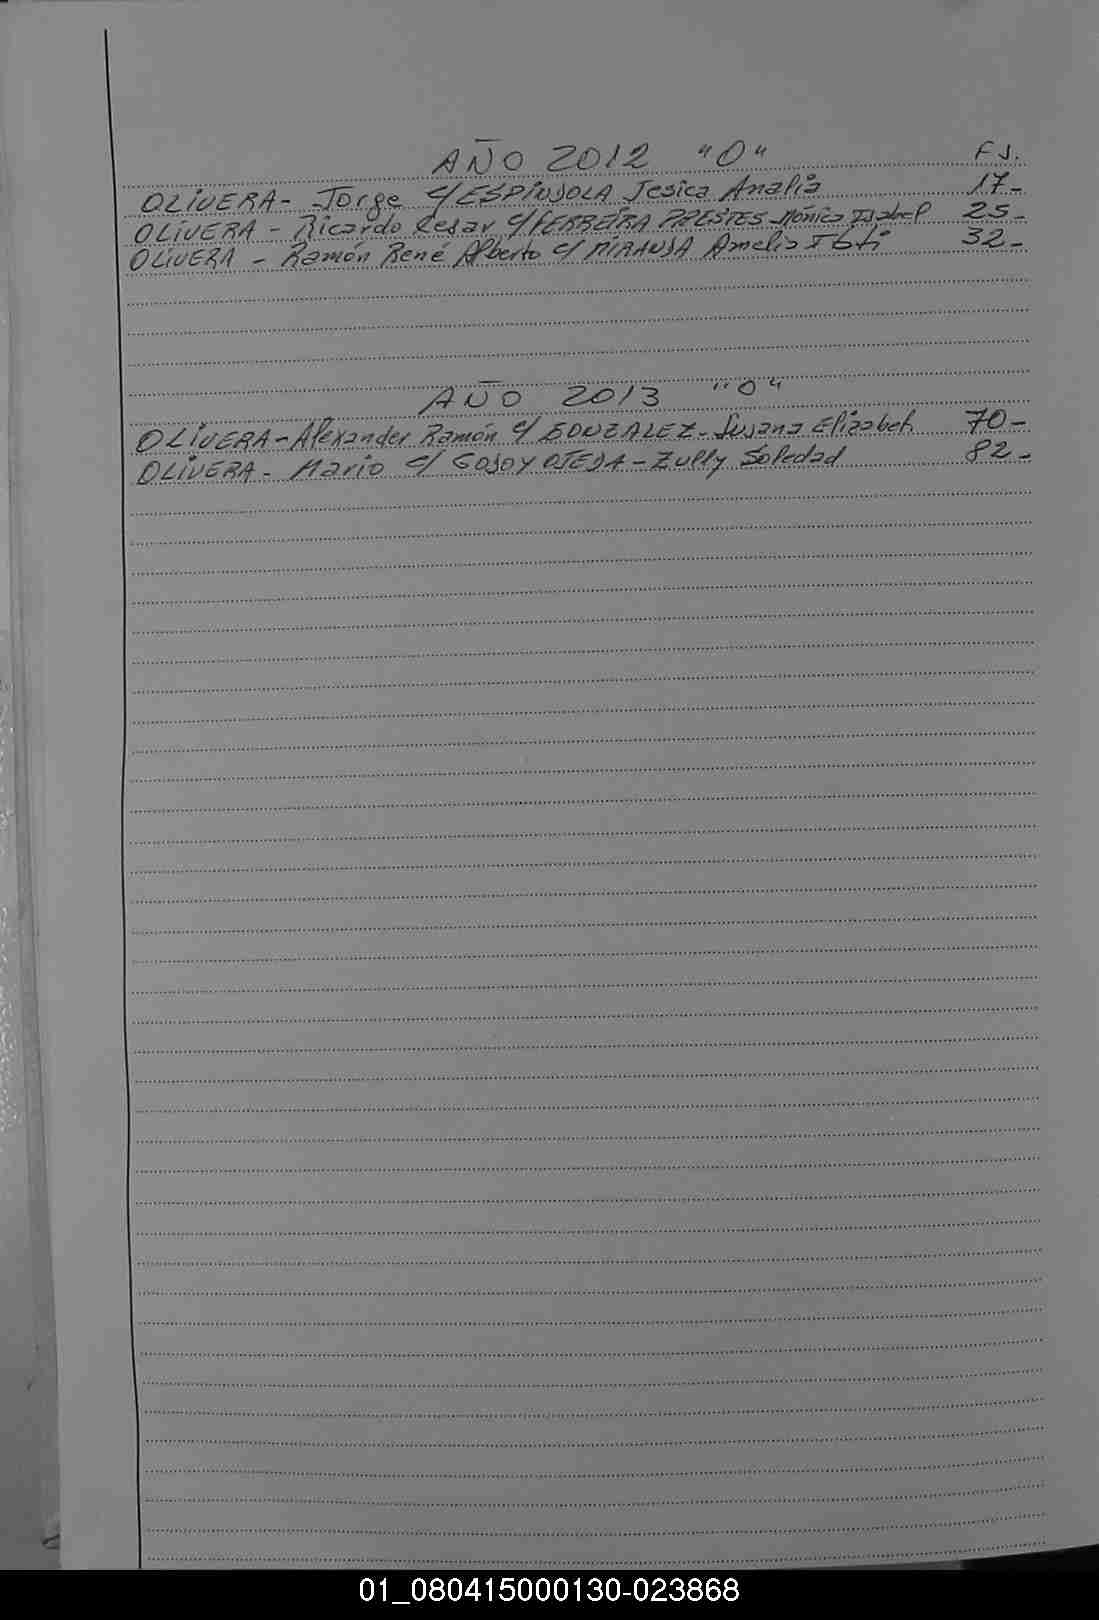 AÑO 2012 "O" FS.
OLIVERA- Jorge C/ ESPINDOLA Jesica Analia 17-
OLIVERA - Ricardo Cesar C/ FERREIRA PRESTES-Mónica Isabel 25-
OLIVERA - Ramón René Alberto C/ MIRANDA Amelia 32-
AÑO 2013 "O"
OLIVERA-Alexander Ramón C/ GONZALEZ-Susana Elizabeh 70-
OLIVERA- Mario C/ GODOY OJEDA-Zully Soledad 82-
01_080415000130-023868